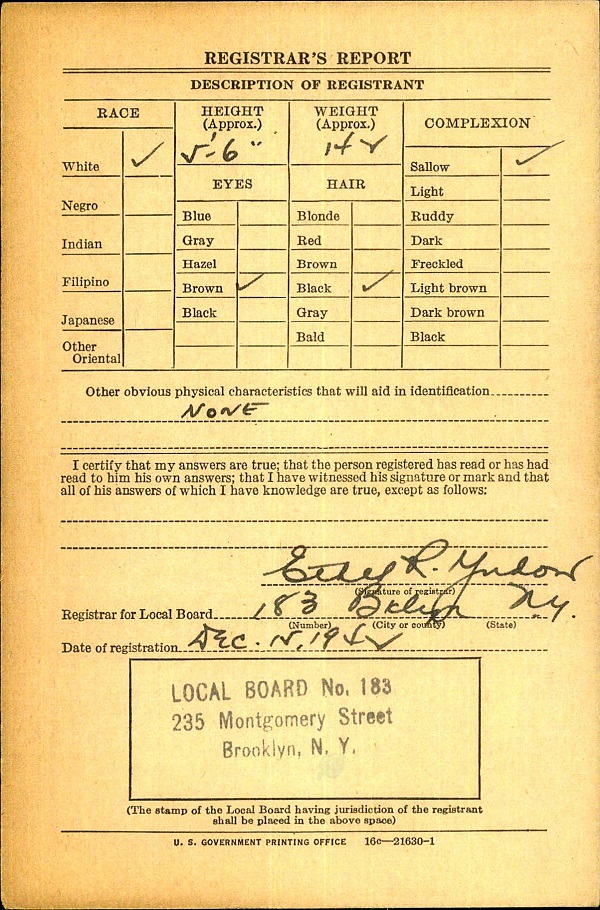 REGISTRAR'S REPORT
DESCRIPTION OF REGISTRANT
RACE
HEIGHT (Approx.)
WEIGHT (Approx.)
COMPLEXION
5'-6"
142
White ✓
Negro
Indian
Filipino
Japanese
Other Oriental
EYES
Blue
Gray
Hazel
Brown ✓
Black
HAIR
Blonde
Red
Brown
Black ✓
Gray
Bald
Sallow ✓
Light
Ruddy
Dark
Freckled
Light brown
Dark brown
Black
Other obvious physical characteristics that will aid in identification
NONE
I certify that my answers are true; that the person registered has read or has had
read to him his own answers; that I have witnessed his signature or mark and that
all of his answers of which I have knowledge are true, except as follows:
Ethel R.
(Signature of registrar)
Registrar for Local Board 183 Bklyn N.Y.
(Number) (City or county) (State)
Date of registration DEC. 15, 1942
LOCAL BOARD No. 183
235 Montgomery Street
Brooklyn, N. Y.
(The stamp of the Local Board having jurisdiction of the registrant
shall be placed in the above space)
U. S. GOVERNMENT PRINTING OFFICE 16c—21630-1